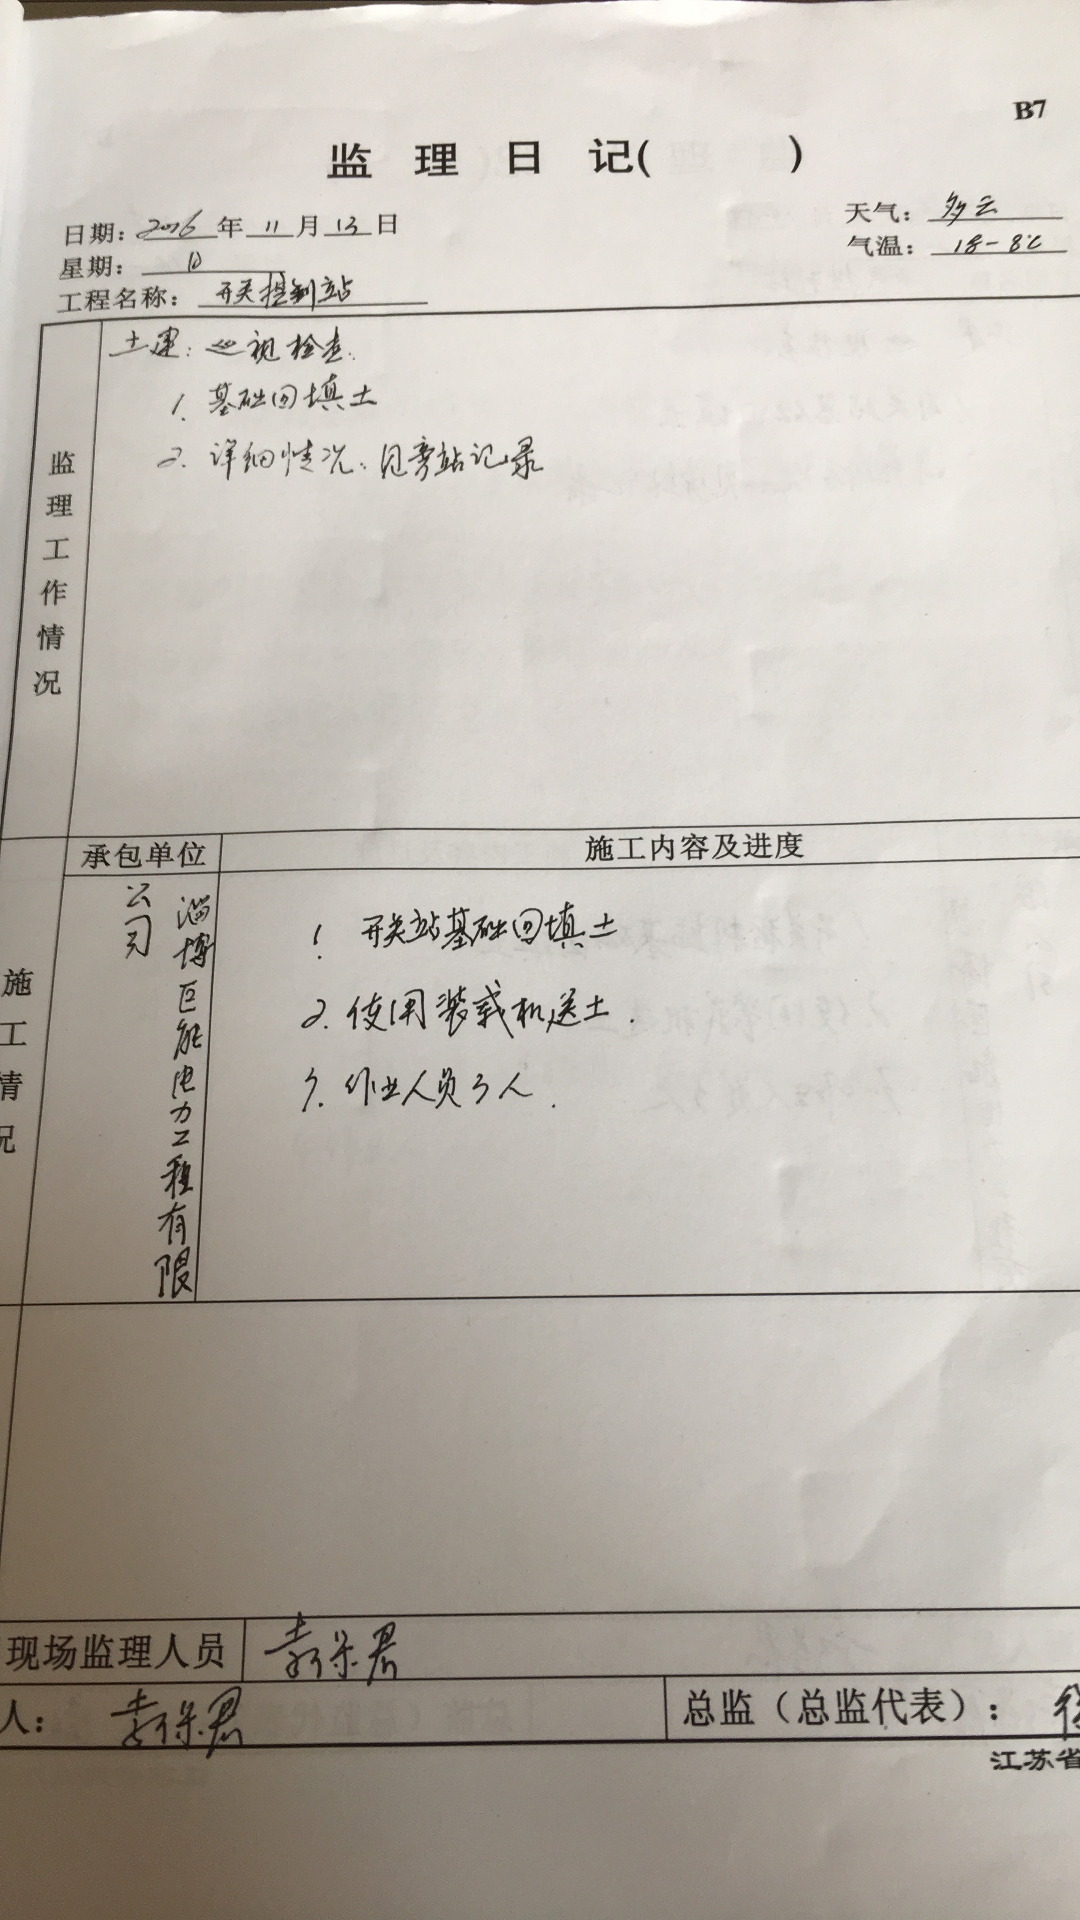 B7
监 理 日 记( )
日期: 2016 年 11 月 13 日
天气: 多云
星期: 日
气温: 18-8℃
工程名称: 开关控制站
监理工作情况
土建: 巡视检查.
1. 基础回填土
2. 详细情况: 见旁站记录
承包单位
施工内容及进度
施工情况
淄博巨能电力工程有限
公司
1. 开关站基础回填土
2. 使用装载机送土.
3. 作业人员3人.
现场监理人员
人:
总监（总监代表）: 徐
江苏省